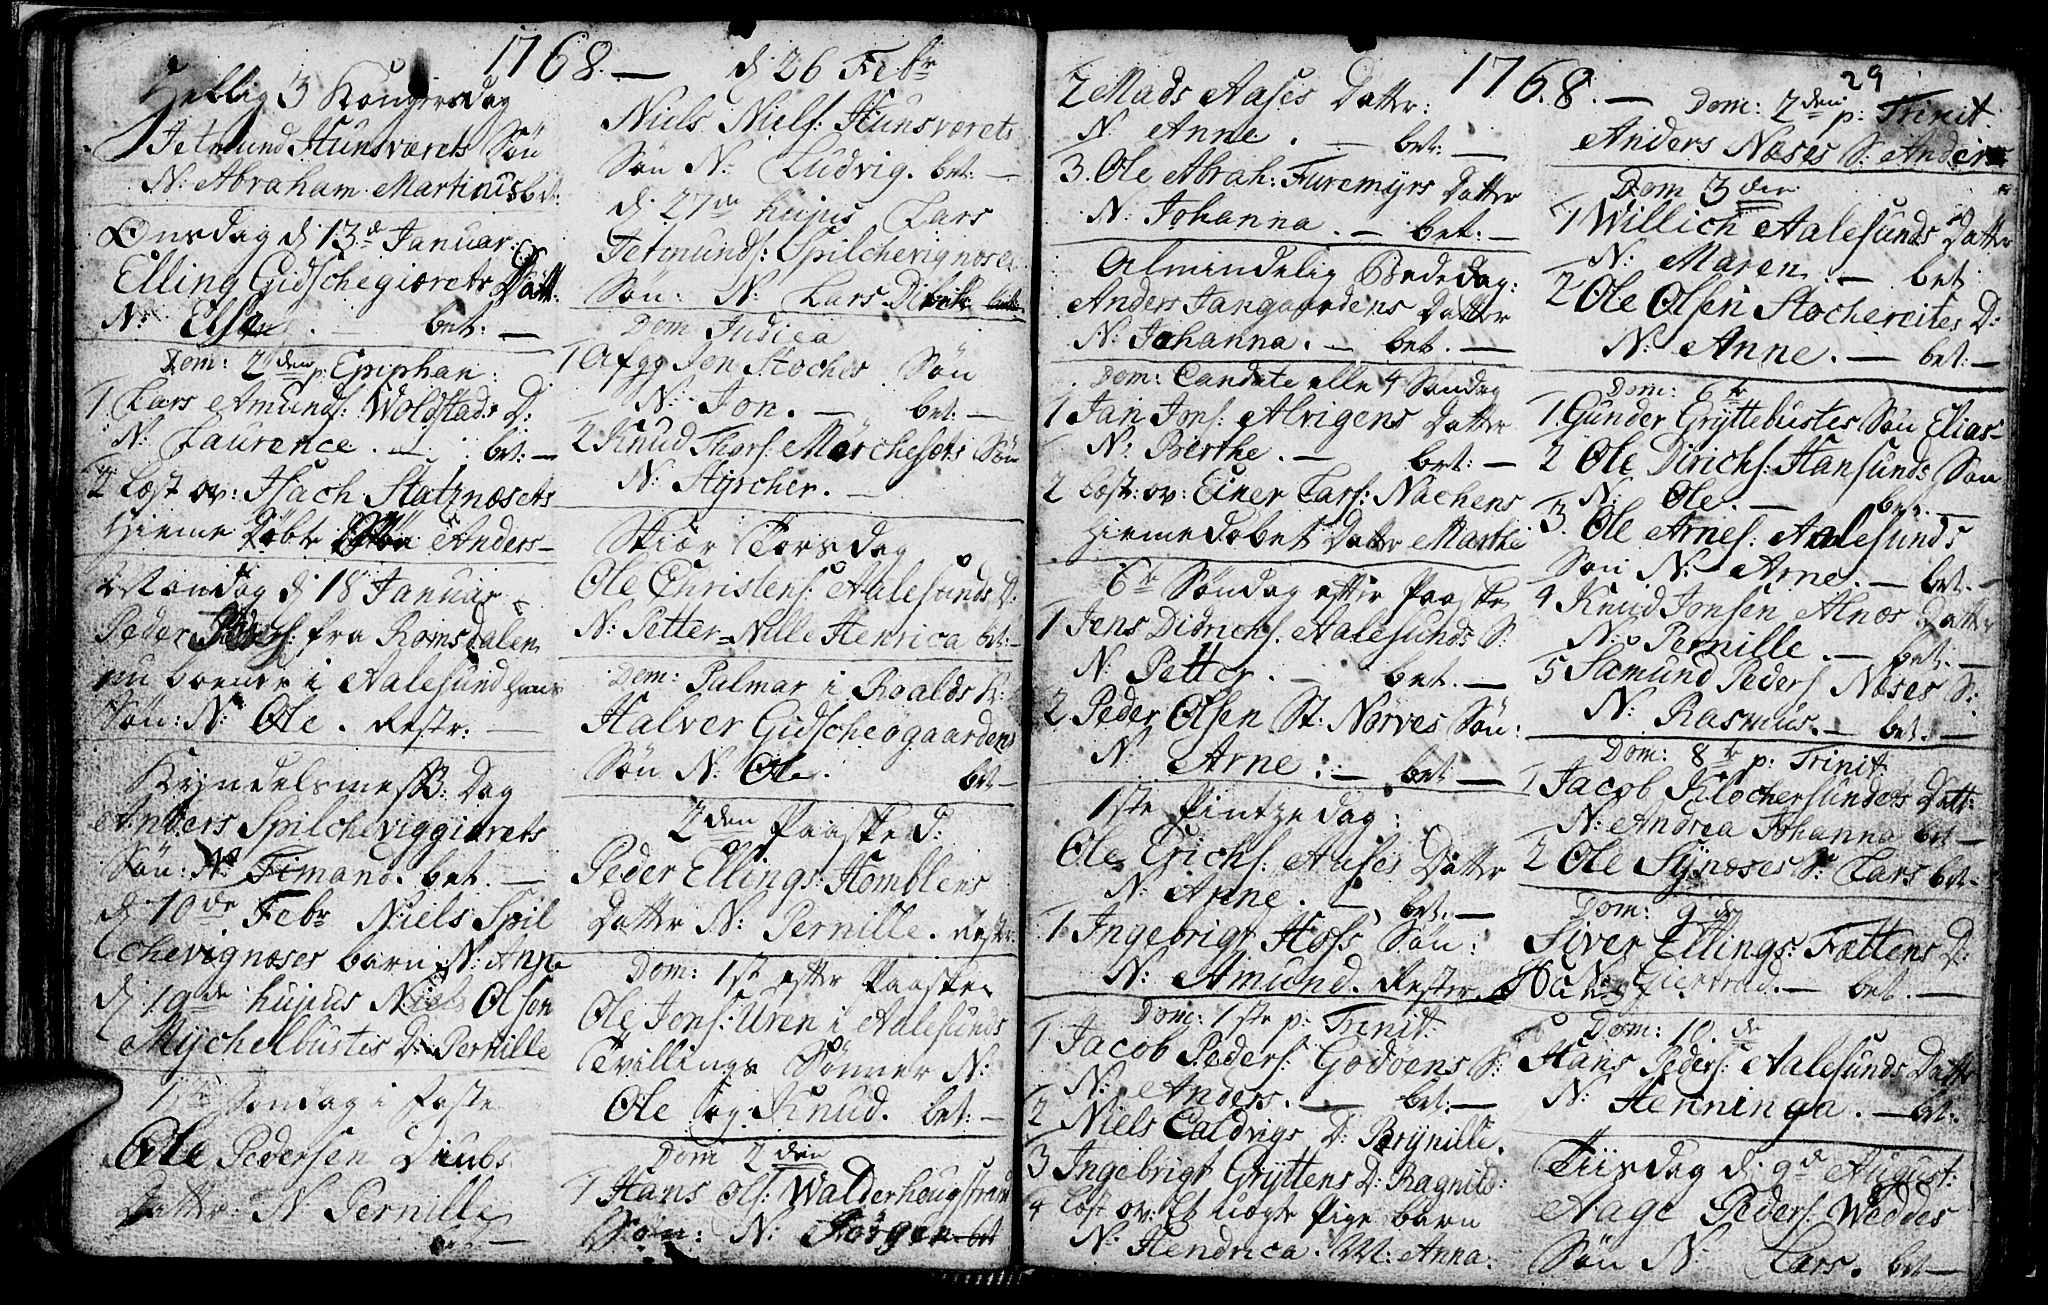 1768. —
Hellig 3 Kongersdag
Jetmund Hunsværets Søn
N: Abraham Martinus bet:
Onsdag d. 13de Januar:
Elling Gidschegiærets Datt:
N: Else. — bet: —
Dom: 2den p: Epiphan:
1 Lars Amunds: Wolstads D:
N: Laurence. — bet: —
2 Læst ov: Isach Statznæsets
Hiemme døbte Søn Anders —
Mandag d. 18 Januar
Peder Peders: fra Romsdalen
nu boende i Aalesund hans
Søn: N: Ole. Restr: —
Kyndelsmess: Dag
Anders Spilcheviggiærets
Søn: N: Timand. bet. —
d. 10de Febr Niels Spil
chevignæses barn N: Anne
d. 19de hujus Niels Olsøn
Mychelbustes D: Pernille
1ste Søndag i faste
Ole Pedersen Diubs
Datter: N: Pernille
bet —
d. 26 Febr
Niels Niels: Hunsværets
Søn N: Ludvig. bet: —
d. 27de hujus Lars
Jetmunds: Spilchevignæses
Søn: N: Lars bet:
Dom Judica
1 Afgg Jon Stoches Søn
N: Jon. — bet: —
2 Knud Thors: Mørchesæts Søn
N: Styrcher. —
Skiær Torsdag
Ole Christens: Aalesunds D:
N: Petter-Nille Henrica bet: —
Dom: Palmar i Roalds K:
Halver Gidscheøgaardens
Søn N: Ole. bet —
2den Paaske d:
Peder Ellings: Homblens
Datter N: Pernille. Rest:
Dom: 1st efter Paaske
Ole Jons: Uren i Aalesunds
Tvillings Sønner N:
Ole og Knud. bet: —
Dom 2den
1 Hans Ols: Walderhougstrand
Søn: N: Jørgen bet
1768. —
2 Mads Aases Datter:
N: Anne. — bet: —
3. Ole Abrah: Furemyrs Datter
N: Johanna. — bet: —
Almindelig Bededag:
Anders Tangaardens Datter
N: Johanna. — bet. —
Dom: Cantate elle 4 Søndag
1 Jan Jons: Alvigens Datter
N: Berthe. — bet: —
2 Læst: ov: Einer Lars: Nachens
Hiemmedøbet Datter Marthe
6te Søndag efter Paaske
1 Jens Didrichs: Aalesunds S:
N: Petter. — bet. —
2 Peder Olsen St: Nørves Søn:
N: Arne: — bet —
1ste Pintzedag:
Ole Erichs: Aases Datter
N: Anne. — bet. —
1 Ingebrigt Hofs Søn:
N: Amund. Rester
Dom: 1ste p: Trinit:
1 Jacob Peders: Godøens S:
N: Anders. — bet: —
2 Niels Caldvigs D: Brynille.
3 Ingebrigt Gryttens D: Ragnild:
4 Læst ov: Et uægte Pige barn
N: Hendrica. M: Anna:
29
Dom: 2den p: Trinit.
Anders Næses S: Anders
Dom 3die
1 Willich Aalesunds Datter
N: Maren — bet
2 Ole Olsen Stochereites D:
N: Anne. — bet: —
Dom: 6te
1 Gunder Gryttebustes Søn Elias —
2 Ole Dirichs: Hansunds Søn
N: Ole. — bet. —
3. Ole Arnes: Aalesunds
Søn N: Arne. — bet. —
4 Knud Jonsen Alnæs Datter
N: Pernille. — bet. —
5 Samund Peders Næses S:
N: Rasmus. — bet. —
Dom: 8te p: Trinit:
1 Jacob Klochersundets Datt:
N: Andrea Johanna bet —
2 Ole Synæses S: Lars bet —
Dom: 9de
Siver Ellings: Fættens D:
N: Giertrud. — bet. —
Dom: 10de
Hans Peders: Aalesunds Datter
N: Henninga. — bet:
Tiisdag d. 9de August:
Aage Peders: Weddes
Søn N: Lars. bet —